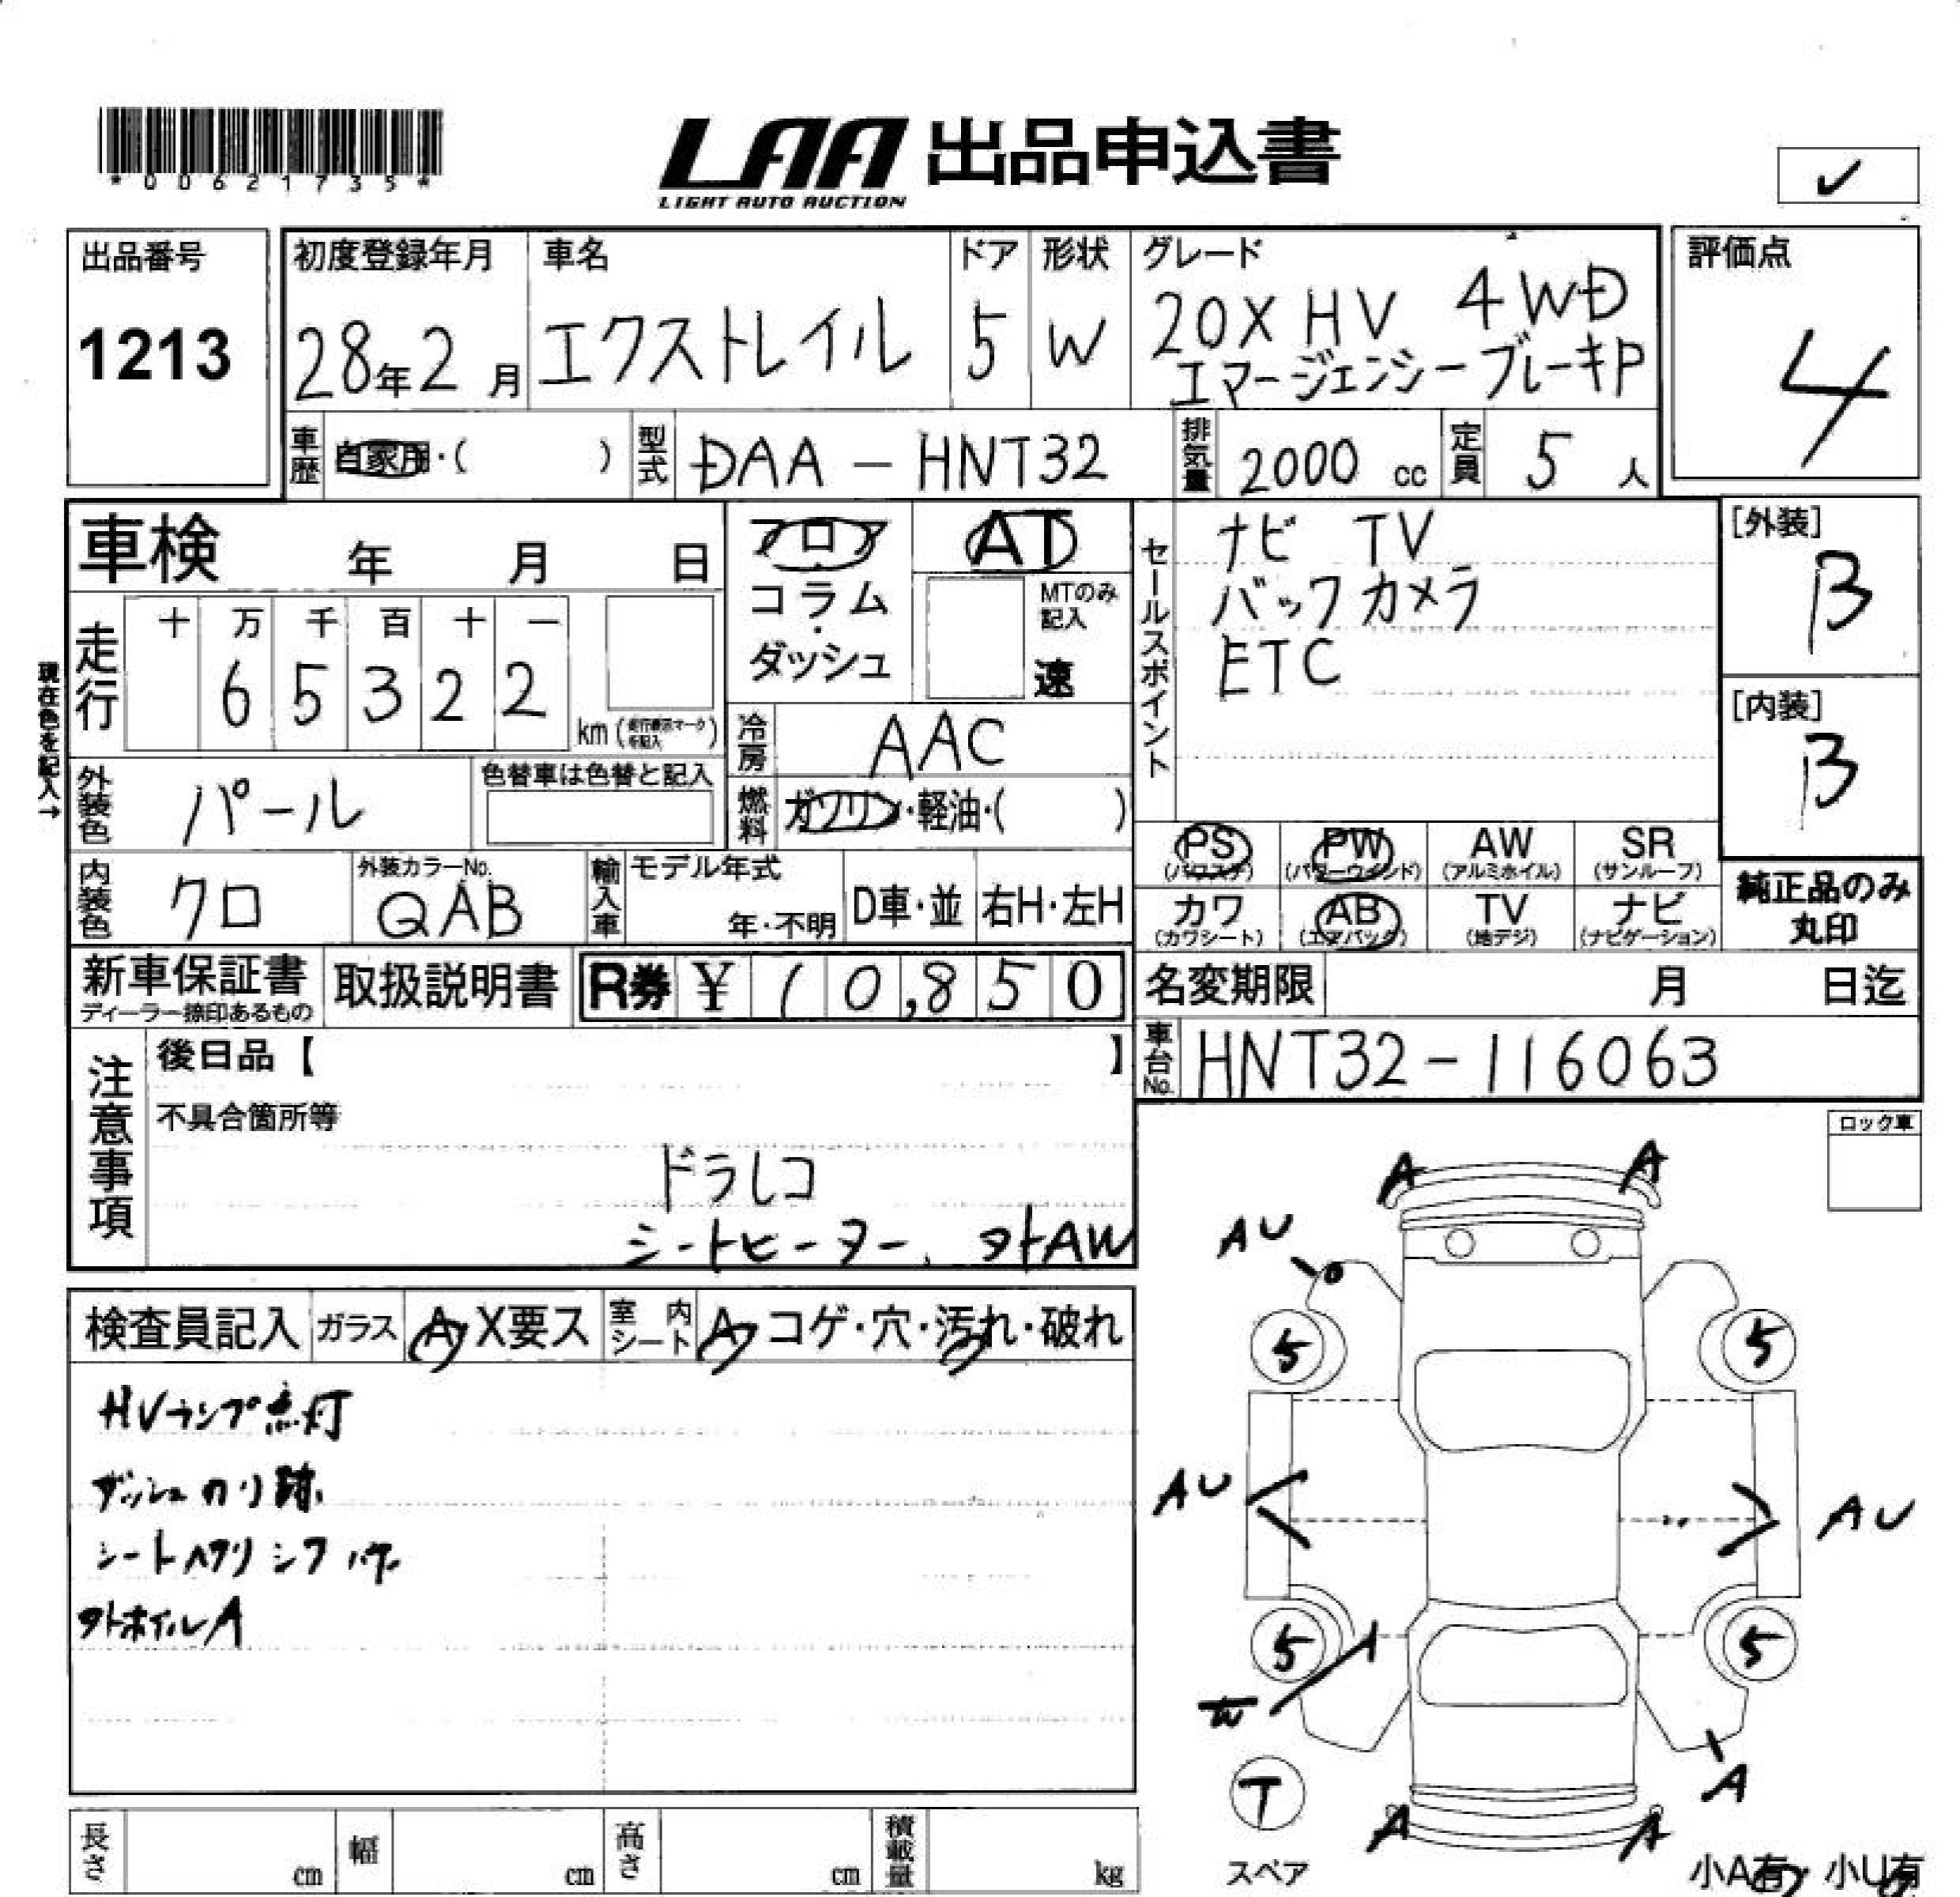 *00621735*
LAA 出品申込書
LIGHT AUTO AUCTION
✓
出品番号
1213
初度登録年月
28年2月
車名
エクストレイル
ドア
5
形状
W
グレード
20X HV 4WD
エマージェンシーブレーキP
評価点
4
車歴 自家用・( )
型式 DAA-HNT32
排気量 2000 cc
定員 5 人
車検 年 月 日
フロア
コラム
・
ダッシュ
AT
MTのみ
記入
速
セールスポイント
ナビ TV
バックカメラ
ETC
[外装]
B
[内装]
B
現在色を記入→
走行
十 万 千 百 十 一
6 5 3 2 2
km
冷房 AAC
外装色 パール
色替車は色替と記入
燃料 ガソリン・軽油・( )
PS (パワステ)
PW (パワーウインド)
AW (アルミホイル)
SR (サンルーフ)
カワ (カワシート)
AB (エアバック)
TV (地デジ)
ナビ (ナビゲーション)
純正品のみ
丸印
内装色 クロ
外装カラーNo.
QAB
輸入車
モデル年式
年・不明
D車・並
右H・左H
新車保証書
ディーラー捺印あるもの
取扱説明書
R券 ¥ 10,850
名変期限 月 日迄
車台No. HNT32-116063
注意事項
後日品【 】
不具合箇所等
ドラレコ
シートヒーター、タトAW
ロック車
検査員記入
ガラス A X要ス
室内シート A コゲ・穴・汚れ・破れ
HVランプ点灯
ダッシュのり跡
タトホイルA
A A
AU
5 5
AU AU
5 5
A
T
スペア
A
A A
小A有 小U有
長さ cm
幅 cm
高さ cm
積載量 kg